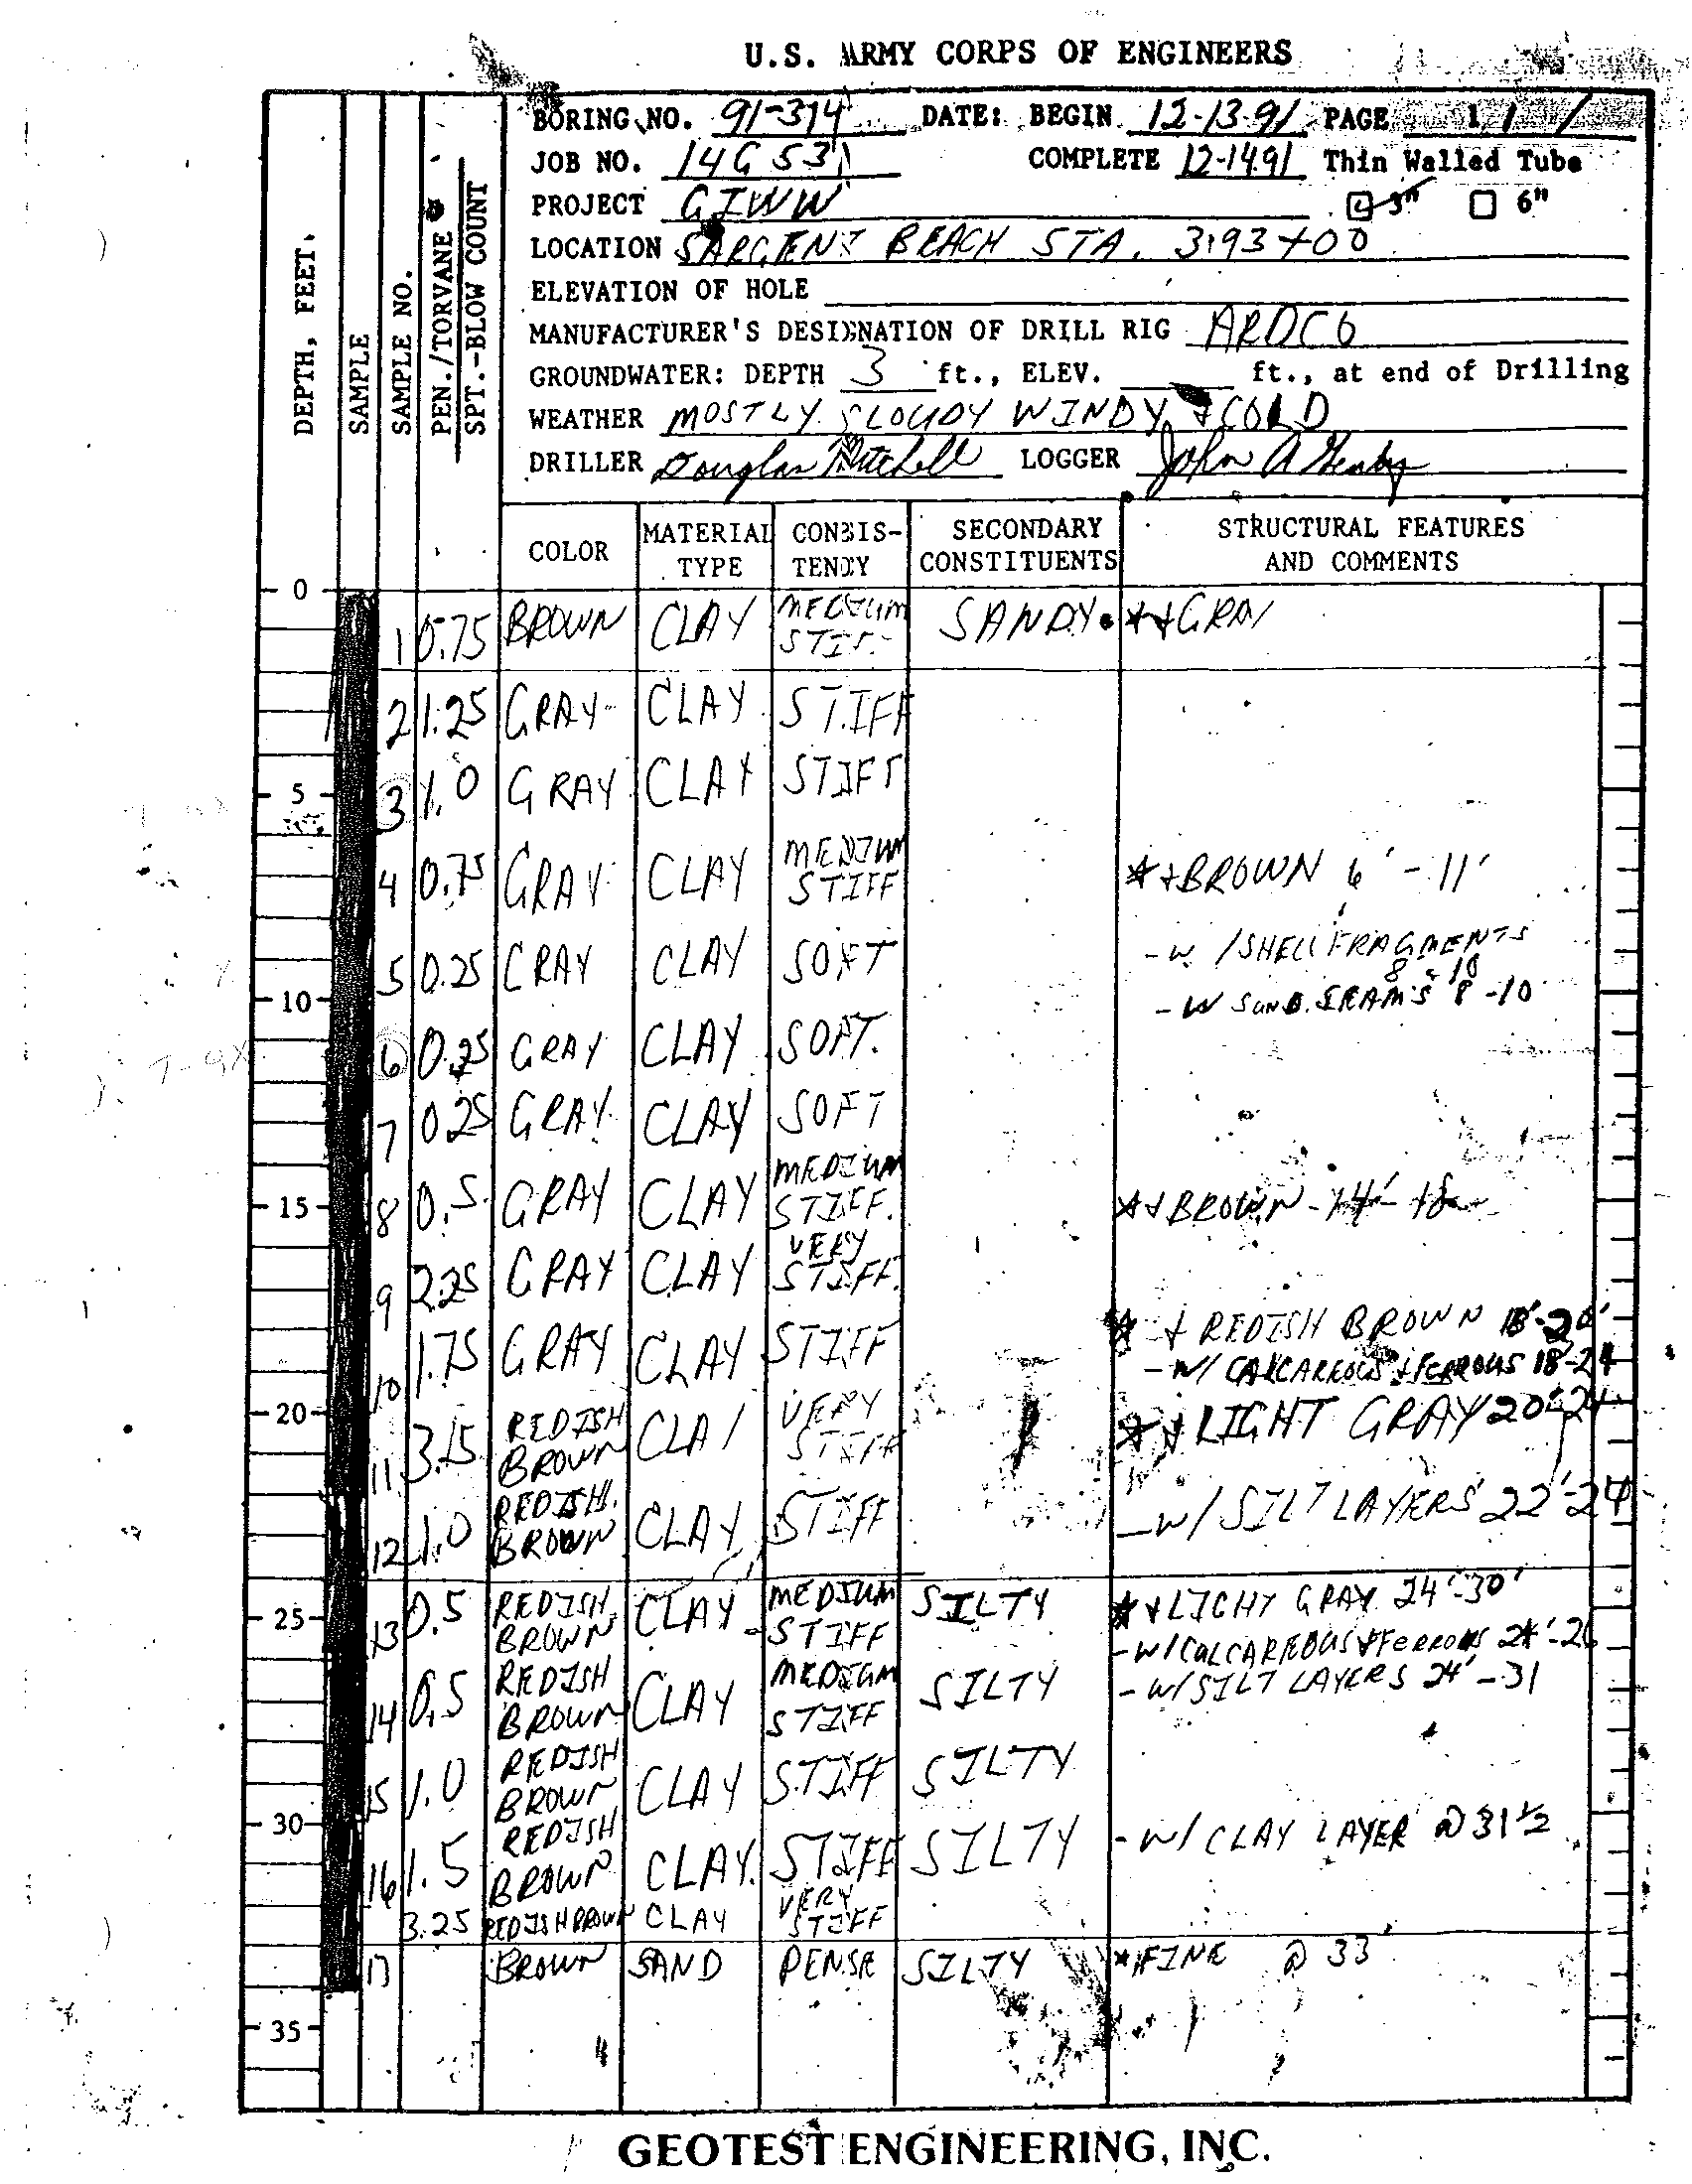 U.S. ARMY CORPS OF ENGINEERS
BORING NO. 91-314 DATE: BEGIN 12-13-91 PAGE 1 /
JOB NO. 14G 531 COMPLETE 12-14-91 Thin Walled Tube
PROJECT GIWW 3" 6"
LOCATION SARGENT BEACH STA. 3193+00
ELEVATION OF HOLE
MANUFACTURER'S DESIGNATION OF DRILL RIG ARDCO
GROUNDWATER: DEPTH 3 ft., ELEV. ft., at end of Drilling
WEATHER MOSTLY CLOUDY WINDY + COLD
DRILLER Douglas Mitchell LOGGER John A
DEPTH, FEET.
SAMPLE
SAMPLE NO.
PEN./TORVANE
SPT.-BLOW COUNT
COLOR MATERIAL TYPE CONSISTENCY SECONDARY CONSTITUENTS STRUCTURAL FEATURES AND COMMENTS
0
1 0.75 BROWN CLAY MEDIUM STIFF SANDY *+GRAY
2 1.25 GRAY CLAY STIFF
5
3 1.0 GRAY CLAY STIFF
4 0.75 GRAY CLAY MEDIUM STIFF *+BROWN 6' - 11'
5 0.25 GRAY CLAY SOFT -W/SHELL FRAGMENTS 8-10
10 -W SAND SEAMS 8-10
6 0.25 GRAY CLAY SOFT.
7 0.25 GRAY CLAY SOFT
15
8 0.5 GRAY CLAY MEDIUM STIFF. *+BROWN -14'-18
9 2.25 GRAY CLAY VERY STIFF.
10 1.75 GRAY CLAY STIFF *+ REDISH BROWN 18'-20'
-W/ CALCAREOUS + FERROUS 18'-24
20
11 3.25 REDISH BROWN CLAY VERY STIFF *+LIGHT GRAY 20'-24
12 1.0 REDISH BROWN CLAY STIFF -W/SILT LAYERS 22'-24
25
13 0.5 REDISH BROWN CLAY MEDIUM STIFF SILTY *+LIGHY GRAY 24'-30'
-W/CALCAREOUS + FERROUS 24'-26
14 0.5 REDISH BROWN CLAY MEDIUM STIFF SILTY -W/SILT LAYERS 24'-31
15 1.0 REDISH BROWN CLAY STIFF SILTY
30
16 1.5 REDISH BROWN CLAY STIFF SILTY -W/ CLAY LAYER @ 31 1/2
3.25 REDISH BROWN CLAY VERY STIFF
17 BROWN SAND DENSE SILTY *FINE @ 33'
35
GEOTEST ENGINEERING, INC.